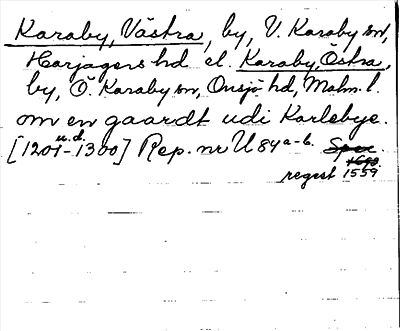 Karaby, Västra, by, V. Karaby sn,
Harjagers hd el. Karaby, Östra,
by, Ö. Karaby sn, Onsjö hd, Malm. l.
om en gaardt udi Karlebye.
u. d.
[1201-1300] Rep. nr U 84 a-b. Spec.
1690
regest 1559.